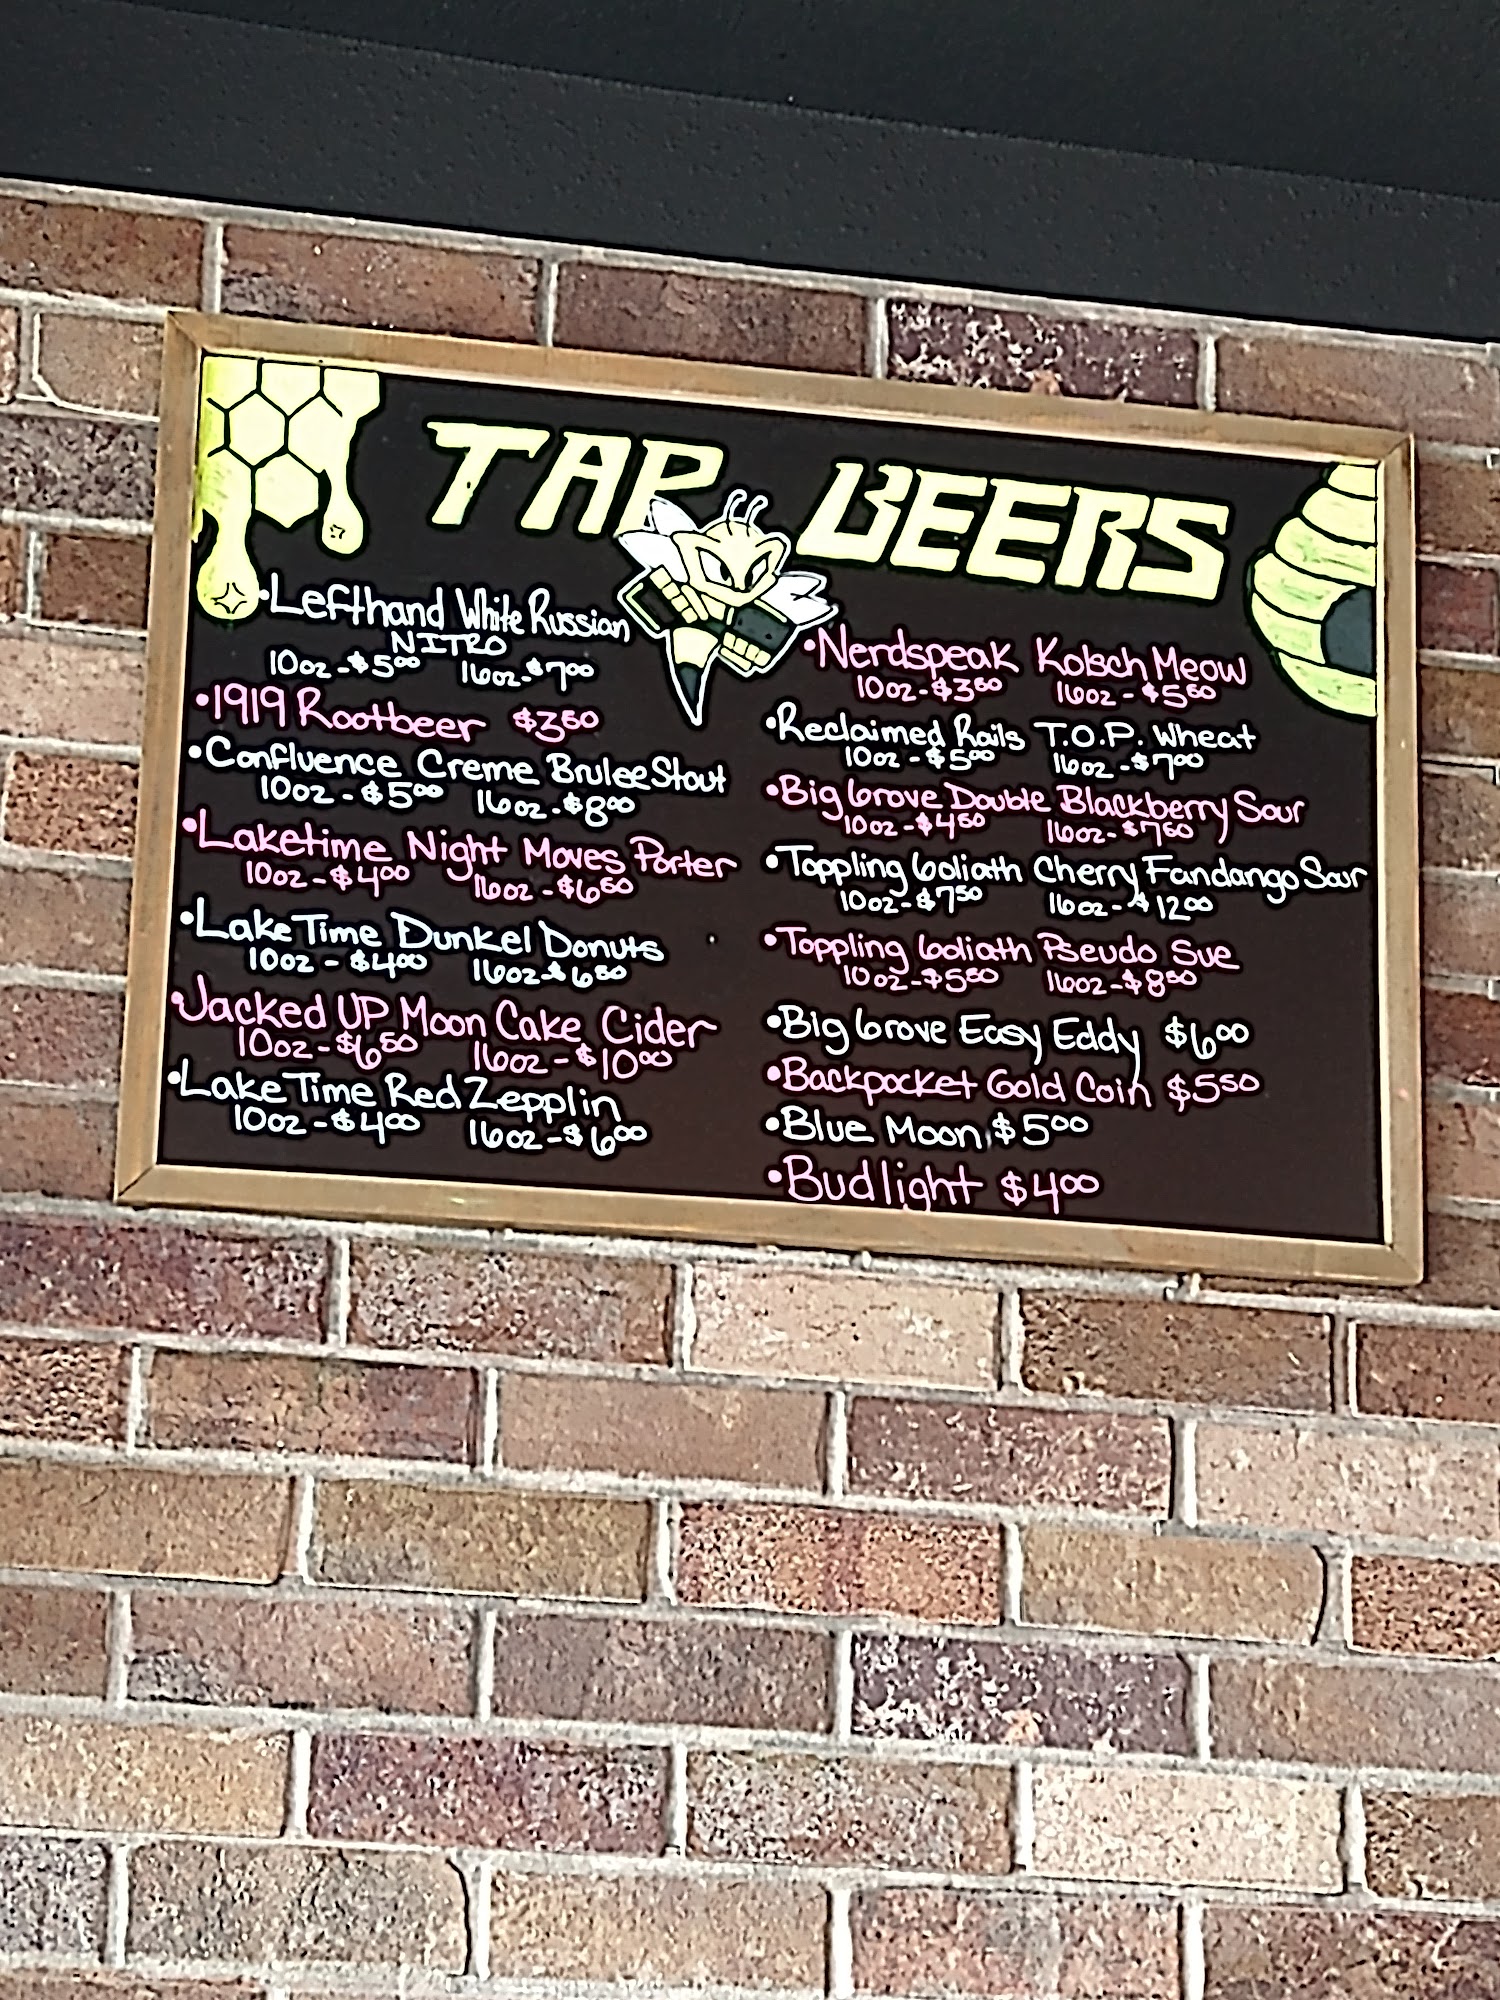 TAP BEERS
•Lefthand White Russian
NITRO
10oz-$5.00 16oz-$7.00
•1919 Rootbeer $3.50
•Confluence Creme Brulee Stout
10oz-$5.00 16oz-$8.00
•Laketime Night Moves Porter
10oz-$4.00 16oz-$6.50
•Lake Time Dunkel Donuts
10oz-$4.00 16oz-$6.50
•Jacked UP Moon Cake Cider
10oz-$6.50 16oz-$10.00
•Lake Time Red Zepplin
10oz-$4.00 16oz-$6.00
•Nerdspeak Kolsch Meow
10oz-$3.50 16oz-$5.50
•Reclaimed Rails T.O.P. Wheat
10oz-$5.00 16oz-$7.00
•Big Grove Double Blackberry Sour
10oz-$4.50 16oz-$7.50
•Toppling Goliath Cherry Fandango Sour
10oz-$7.50 16oz-$12.00
•Toppling Goliath Pseudo Sue
10oz-$5.50 16oz-$8.50
•Big Grove Easy Eddy $6.00
•Backpocket Gold Coin $5.50
•Blue Moon $5.00
•Budlight $4.00